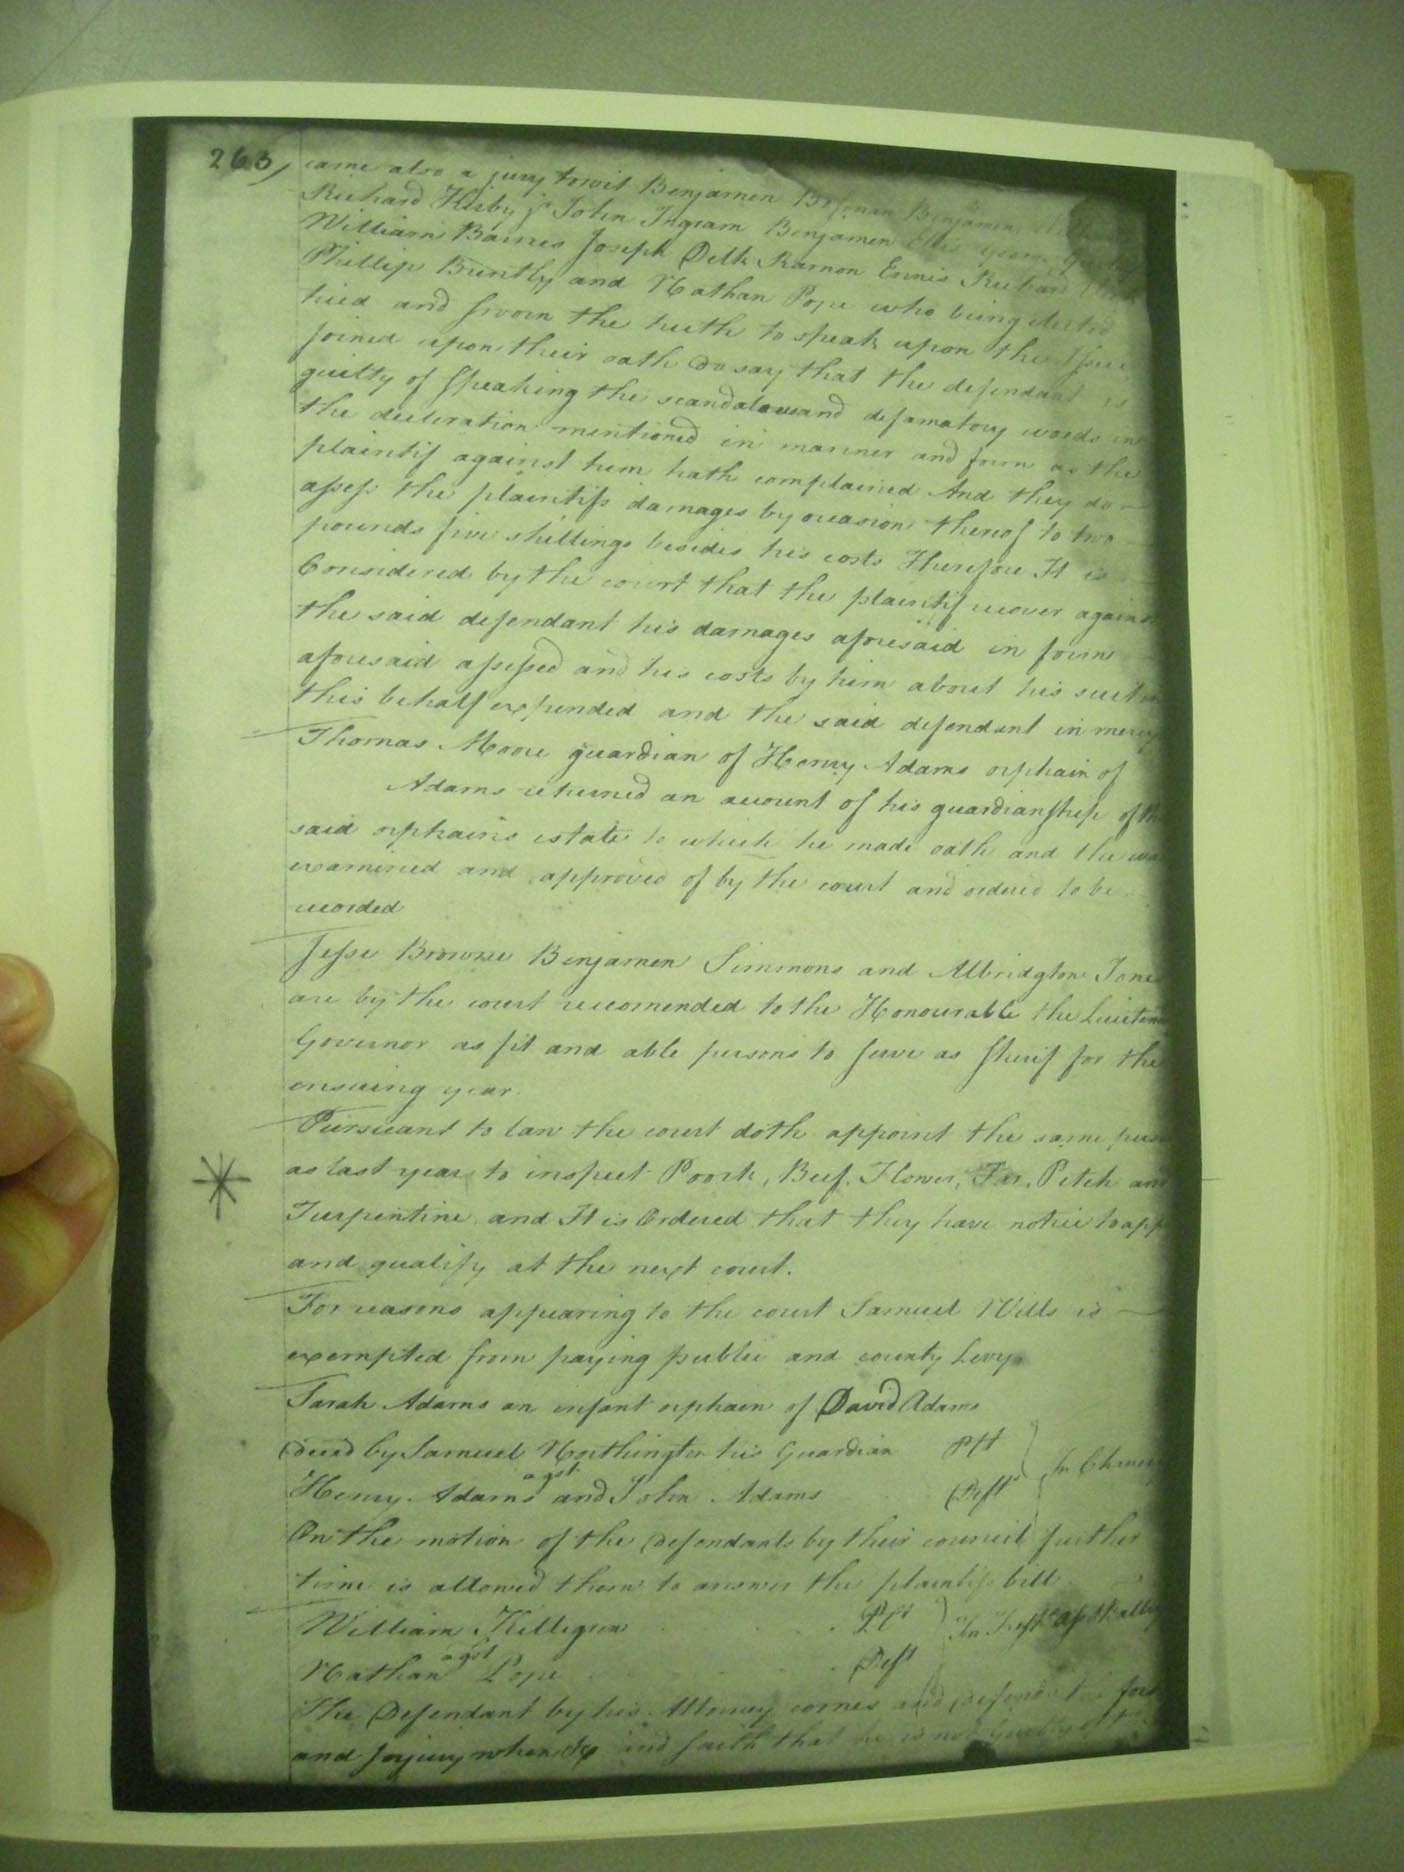 263,
came also a jury towit Benjamen Benjamen
Richard Kirby jr John Ingram Benjamen Ellis
William Baines Joseph Delk Ramon Ennis Richard
Phillip Brintly and Nathan Pope who being elected
tried and sworn the truth to speak upon the Issue
joined upon their oath do say that the defendant is
guilty of speaking the scandalous and defamatory words in
the decleration mentioned in manner and form as the
plaintif against him hath complained And they do
assess the plaintifs damages by ocasion thereof to two
pounds five shillings besides his costs Therefore It is
Considered by the court that the plaintif recover against
the said defendant his damages aforesaid in form
aforesaid assessed and his costs by him about his suit in
this behalf expended and the said defendant in mercy
Thomas Moore guardian of Henry Adams orphain of
Adams returned an account of his guardianship of the
said orphains estate to which he made oath and the
examined and approved of by the court and ordered to be
recorded
Jesse Browne Benjamen Simmons and Albridgton Jones
are by the court reccomended to the Honourable the Lieutenn
Governor as fit and able persons to serve as sherif for the
ensuing year.
Pursuant to law the court doth appoint the same
as last year to inspect Poork, Beef. Flower, Tar, Pitch and
Turpentine and It is Ordered that they have notice to app
and qualify at the next court.
For reasons appearing to the court Samuel Wills is
exempted from paying public and county Levy
Sarah Adams an infant orphain of David Adams
decd by Samuel Northington his Guardian Plt
agst In Chancery
Henry Adams and John Adams Defts
On the motion of the Defendants by their council further
time is allowed them to answer the plaintifs bill
William Killigrew Plt
agst
Nathan Pope Deft
The Defendant by his Attorney comes and defends the force
and Injury when &c and saith that he is not Guilty of